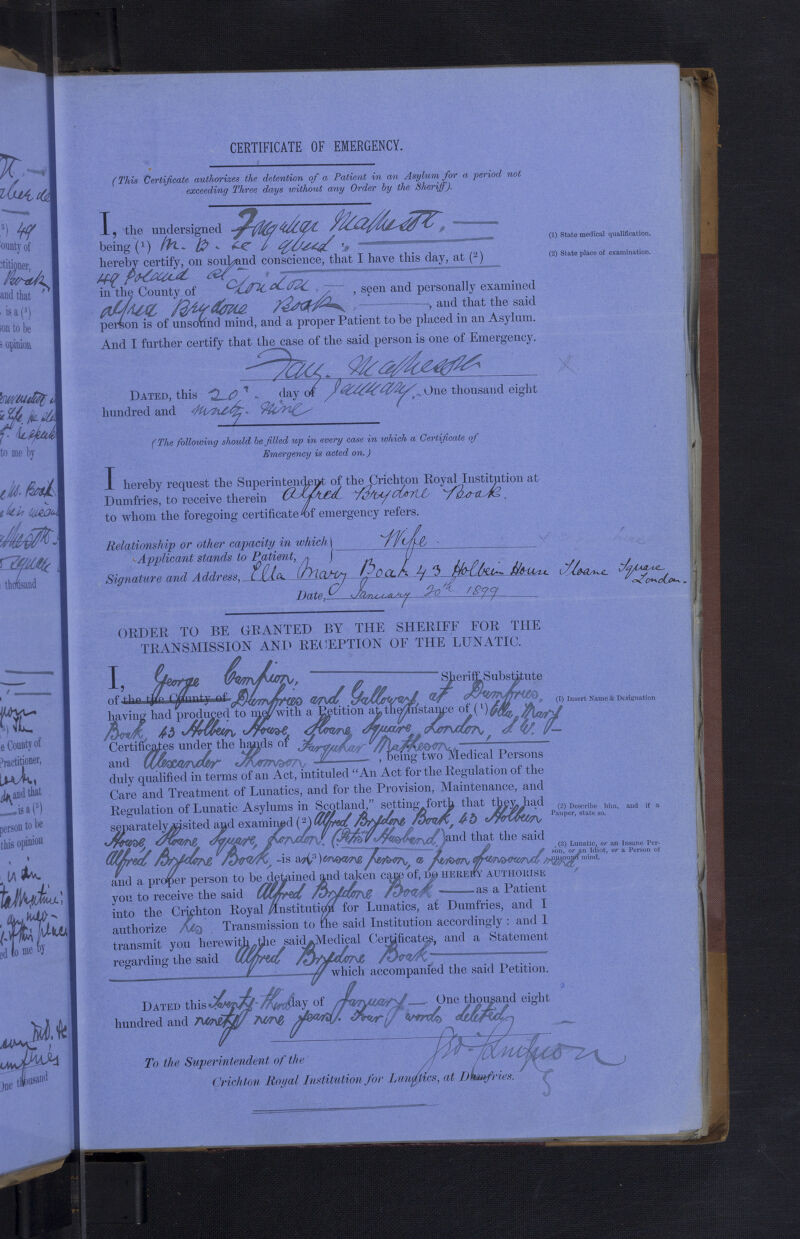 CERTIFICATE OF EMERGENCY.
(This Certificate authorizes the detention of a Patient in an Asylum for a period not
exceeding Three days without any Order by the Sheriff).
I, the undersigned Farquhar Matheson,
being (1) M. B. &c
(1) State medical qualification.
hereby certify, on soul and conscience, that I have this day, at (2)
(2) State place of examination.
49 Poland
in the County of London, seen and personally examined
Alfred Brydone Boak, and that the said
person is of unsound mind, and a proper Patient to be placed in an Asylum.
And I further certify that the case of the said person is one of Emergency.
Farq. Matheson
DATED, this 20th day of January, One thousand eight
hundred and ninety-nine
(The following should be filled up in every case in which a Certificate of
Emergency is acted on.)
I hereby request the Superintendent of the Crichton Royal Institution at
Dumfries, to receive therein Alfred Brydone Boak.
to whom the foregoing certificate of emergency refers.
Relationship or other capacity in which } Wife
Applicant stands to Patient, }
Signature and Address, Ella Mary Boak 43 Holbein House Sloane Square
London.
Date, January 20th 1899
ORDER TO BE GRANTED BY THE SHERIFF FOR THE
TRANSMISSION AND RECEPTION OF THE LUNATIC.
I, George Campion, Sheriff Substitute
of the the County of Dumfries and Galloway, at Dumfries,
(1) Insert Name & Designation
having had produced to me, with a Petition at the instance of (1) Ella Mary
Boak, 43 Holbein House, Sloane Square, London, S. W.
Certificates under the hands of Farquhar Matheson,
and Alexander Thomson, being two Medical Persons
duly qualified in terms of an Act, intituled "An Act for the Regulation of the
Care and Treatment of Lunatics, and for the Provision, Maintenance, and
Regulation of Lunatic Asylums in Scotland," setting forth that they had
(2) Describe him, and if a
Pauper, state so.
separately visited and examined (2) Alfred Brydone Boak, 43 Holbein
House, Sloane Square, London. (Petrs Husband.) and that the said
(3) Lunatic, or an Insane Per-
son, or an Idiot, or a Person of
unsound mind.
Alfred Brydone Boak, is an (3) insane person, a person of unsound mind,
and a proper person to be detained and taken care of, DO HEREBY AUTHORISE
you to receive the said Alfred Brydone Boak as a Patient
into the Crichton Royal Institution for Lunatics, at Dumfries, and I
authorize his Transmission to the said Institution accordingly: and I
transmit you herewith the said Medical Certificates, and a Statement
regarding the said Alfred Brydone Boak
which accompanied the said Petition.
DATED this Twenty-third day of January One thousand eight
hundred and ninety nine years. Four words deleted,
Geo. Campion
To the Superintendent of the
Crichton Royal Institution for Lunatics, at Dumfries.